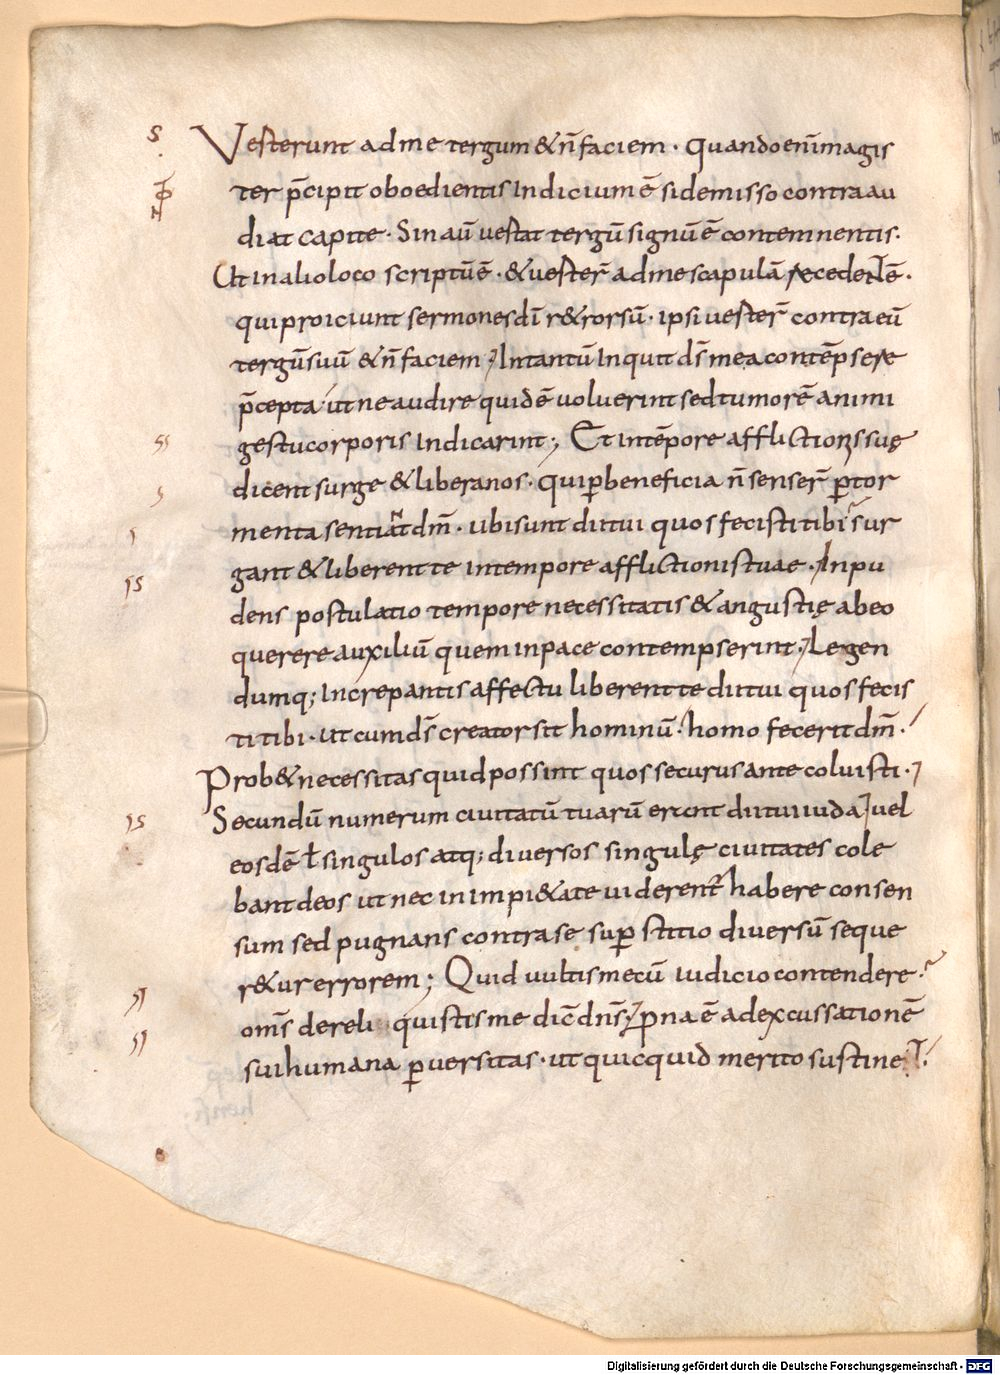 Vesterunt ad me tergum & n̄ faciem · quando enī magis
ter p̄cipit oboedientis Indicium ē si demisso contra au
diat capite · Sin aū vestat tergū signū ē contemnentis ·
Ut in alio loco scriptū ē · & vester̄ ad me scapulā recedentē ·
qui proiciunt sermones dī r&rorsū · ipsi vester̄ contra eū
tergū suū & n̄ faciem / Intantū Inquit ds̄ mea contēpsere
p̄cepta ut ne audire quidē voluerint sed tumorē animi
gestu corporis Indicarint ; Et in tēpore afflictionis suę
dicent surge & libera nos · qui p̄ beneficia n̄ senser̄ p̄ tor
menta sentiat dm̄ · ubi sunt dii tui quos fecisti tibi sur
gant & liberent te in tempore afflictionis tuae · Inpu
dens postulatio tempore necessitatis & angustię ab eo
querere auxiliū quem in pace contempserint · Legen
dumq; Increpantis affectu liberent te dii tui quos fecis
ti tibi · ut cum ds̄ creator sit hominū · homo fecerit dm̄ ·
Prob& necessitas quid possint quos securus ante coluisti ·
Secundū numerum ciuitatū tuarū erant dii tui iuda / vel
eosdē ł singulos atq; diversos singulę ciuitates cole
bant deos ut nec in impi&ate viderent habere consen
sum sed pugnans contra se sup̱stitio diversū seque
r&ur errorem ; Quid vultis mecū iudicio contendere ·
om̄s dereliquistis me dic̄ dn̄s / p̱na ē ad excussationē
sui humana p̱versitas · ut quicquid merito sustinet